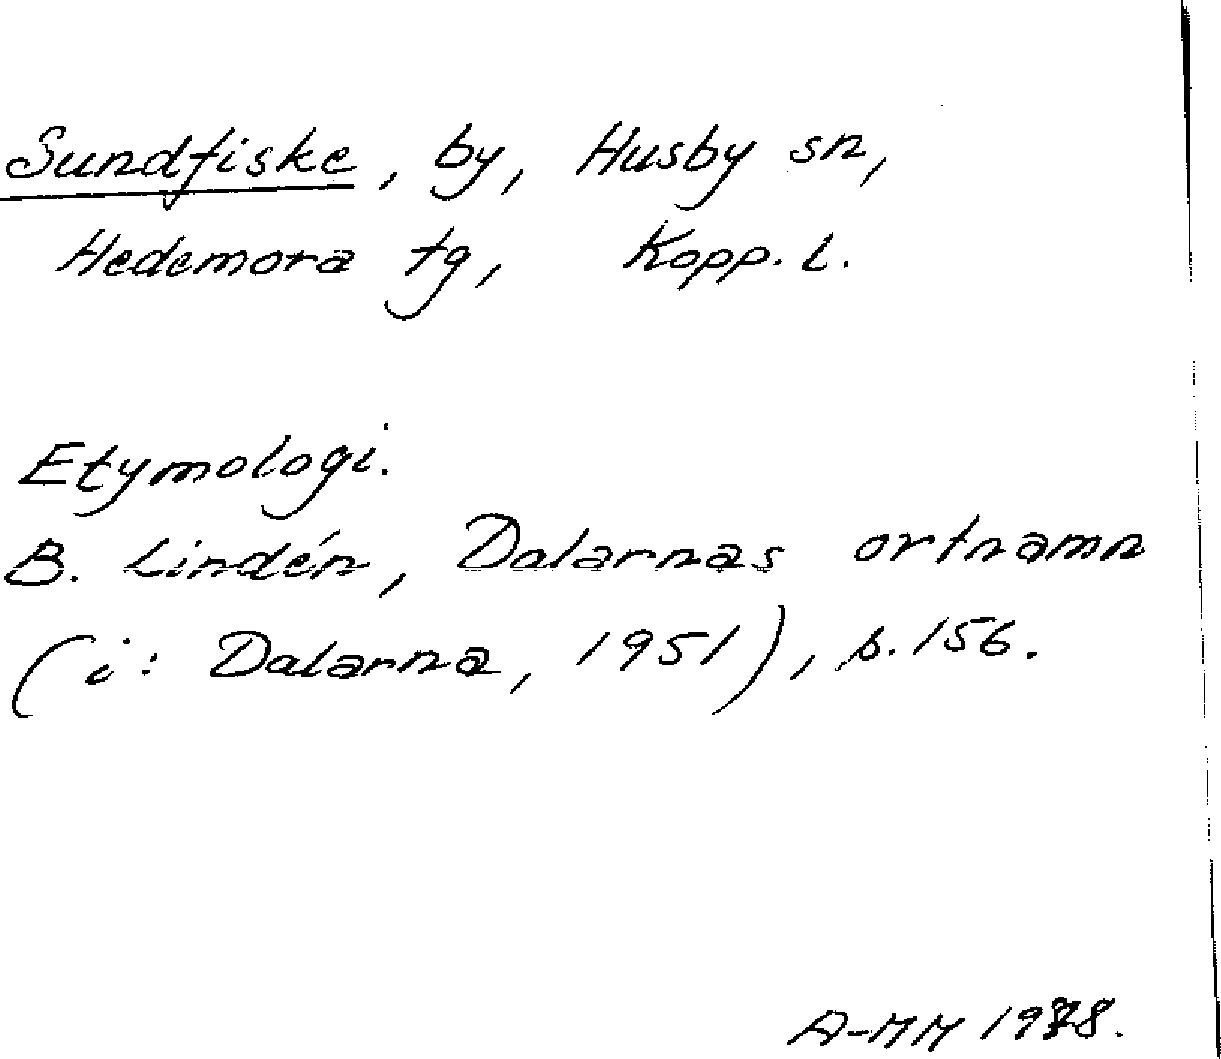 Sundfiske, by, Husby sn,
Hedemora tg, Kopp. l.
Etymologi.
B. Lindén, Dalarnas ortnamn
(i: Dalarna, 1951), s. 156.
A-MM 1978.